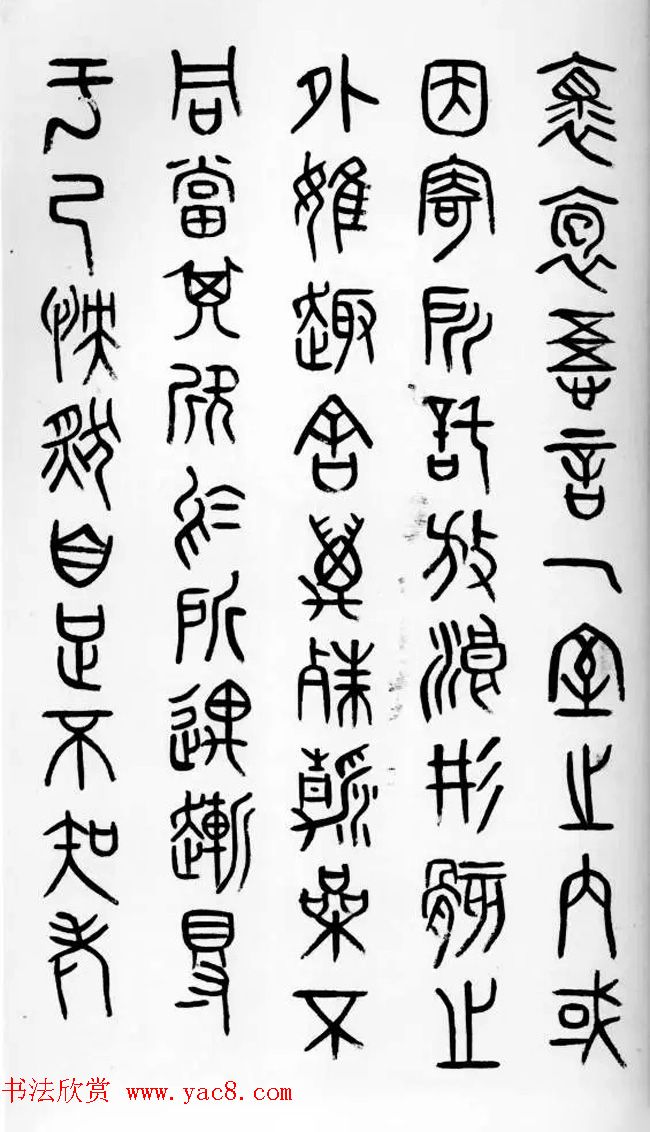 褱袌吾言一室之内或
因寄所託放浪形骸之
外雖趣舍萬殊靜躁不
同當其欣於所遇暫得
于己怏然自足不知老
书法欣赏 www.yac8.com